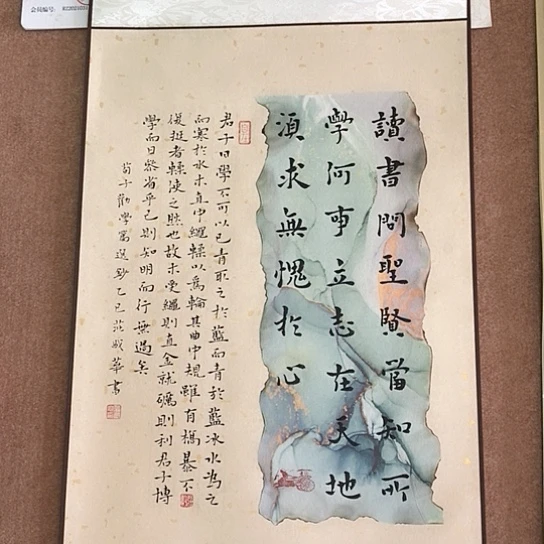 会员编号:
讀書問聖賢當知所
學何事立志在天地
須求無愧於心
君子曰學不可以已青取之於藍而青於藍冰水為之
而寒於水木直中繩輮以為輪其曲中規雖有槁暴不
復挺者輮使之然也故木受繩則直金就礪則利君子博
學而日參省乎己則知明而行無過矣
荀子勸學篇選抄乙巳華書